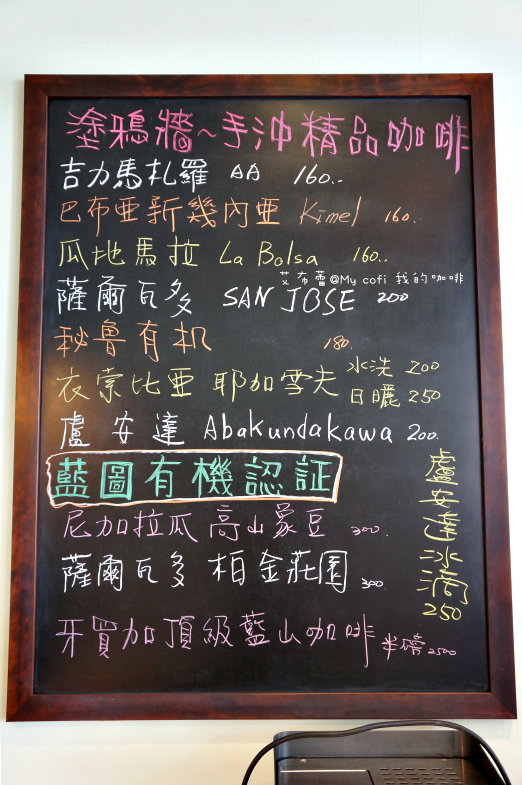 塗鴉牆~手沖精品咖啡
吉力馬札羅 AA 160..
巴布亞新幾內亞 Kimel 160..
瓜地馬拉 La Bolsa 160..
艾布蕾@My cofi 我的咖啡
薩爾瓦多 SAN JOSE 200
秘魯有机 180.
衣索比亞 耶加雪夫 水洗 200
日曬 250
盧安達 Abakundakawa 200.
藍圖有機認証
尼加拉瓜 高山象豆 300.
薩爾瓦多 柏金莊園 300
牙買加頂級藍山咖啡 半磅2500
盧安達冰滴
250